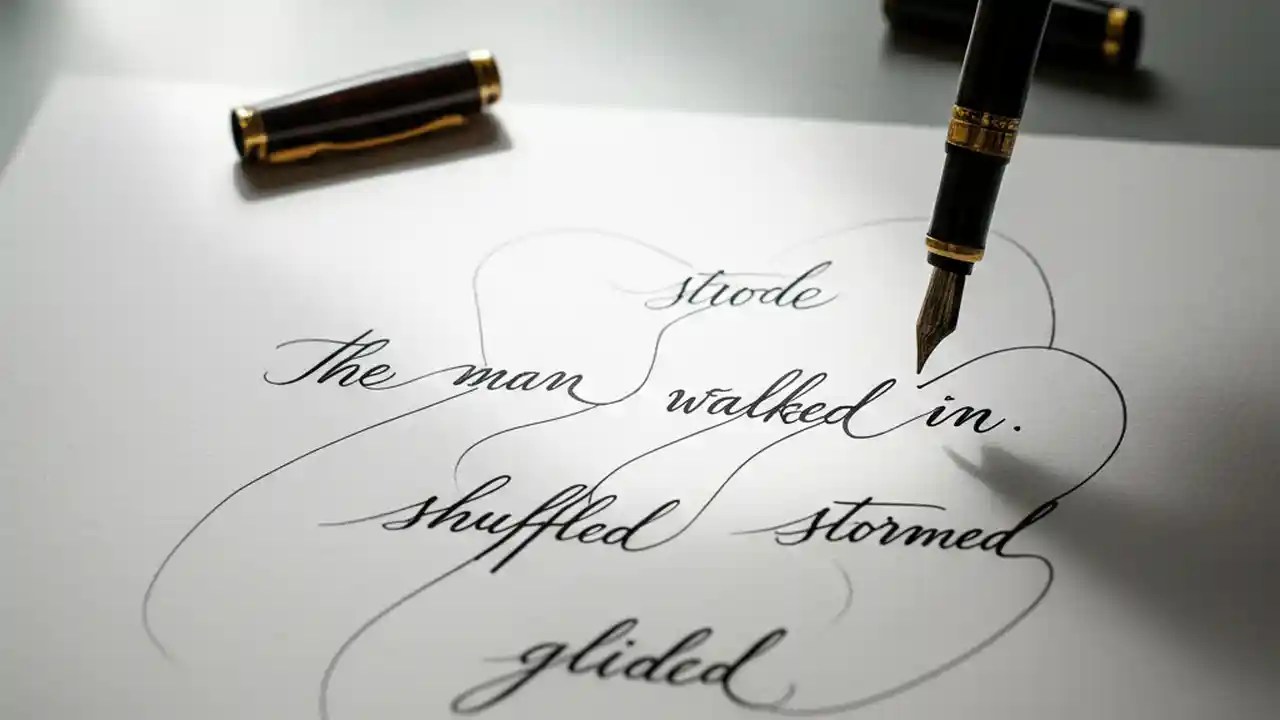 strode
The man walked in.
shuffled stormed
glided